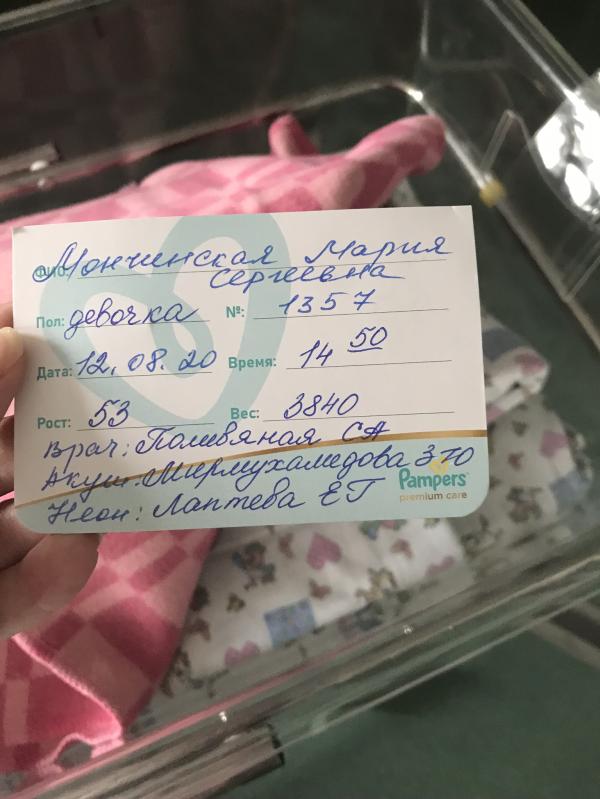 ФИО: Мончинская Мария
Сергеевна
Пол: девочка №: 1357
Дата: 12.08.20 Время: 14 50
Рост: 53 Вес: 3840
Врач: Поливяная СА
Акуш. Мирмухамедова ЗТО
Неон: Лаптева ЕГ
Pampers
premium care